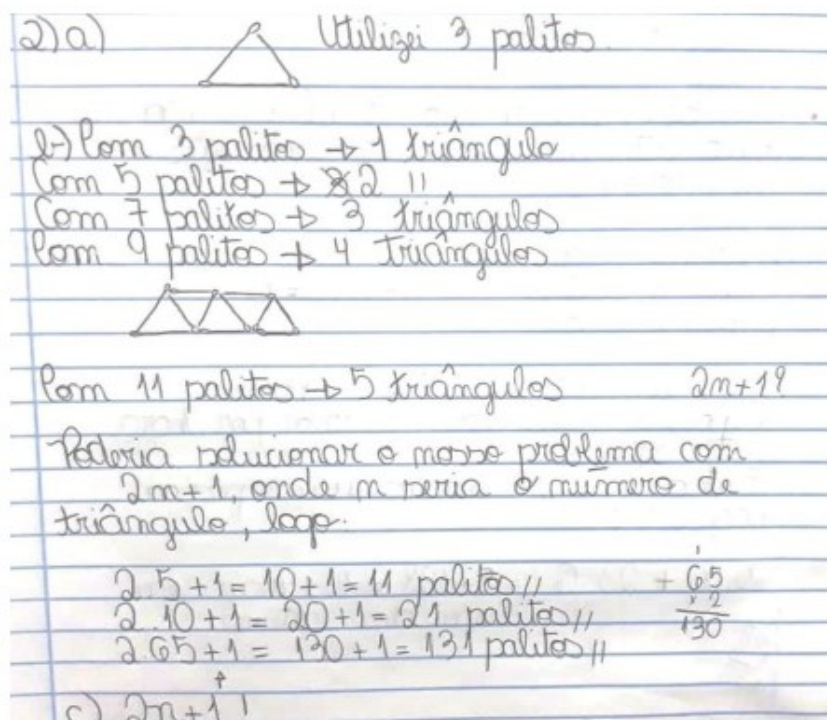 2) a) Utilizei 3 palitos
b) Com 3 palitos → 1 triângulo
Com 5 palitos → 2 "
Com 7 palitos → 3 triângulos
Com 9 palitos → 4 triângulos
Com 11 palitos → 5 triângulos 2n+1?
Poderia solucionar o nosso problema com
2n+1, onde n seria o número de
triângulo, logo:
2.5+1= 10+1= 11 palitos //
2.10+1= 20+1= 21 palitos //
2.65+1= 130+1= 131 palitos //
1
+ 65
2
130
c) 2n+1